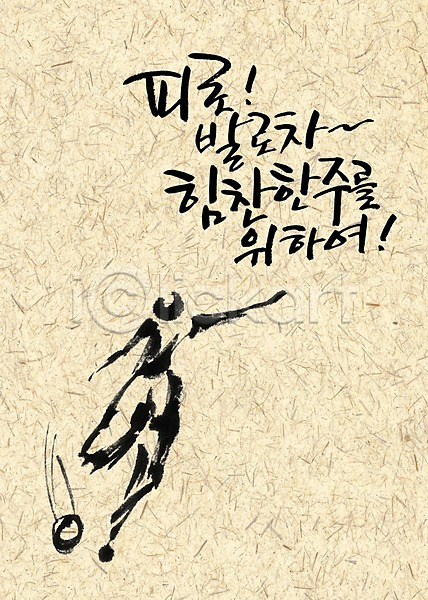 피로!
발로차~
힘찬한주를
위하여!
iclickart